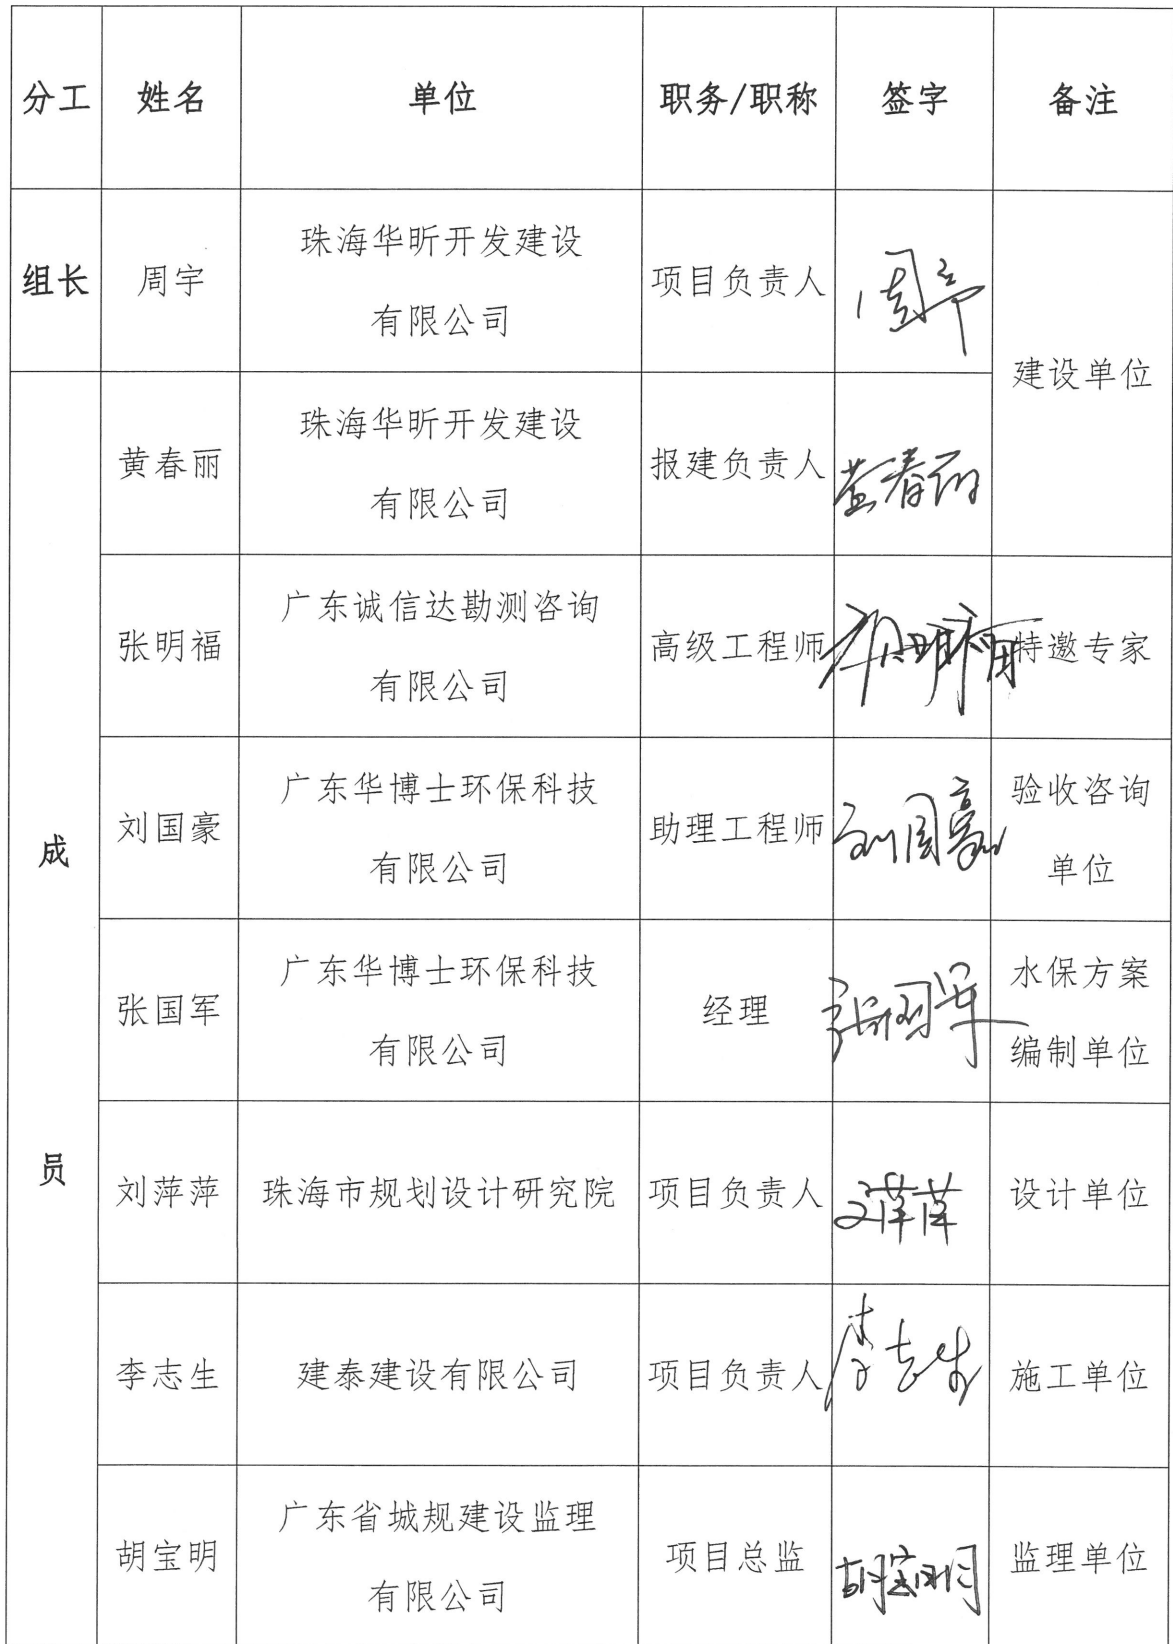 分工 姓名 单位 职务/职称 签字 备注
组长 周宇 珠海华昕开发建设
有限公司 项目负责人 周宇 建设单位
成员
黄春丽 珠海华昕开发建设
有限公司 报建负责人 黄春丽
张明福 广东诚信达勘测咨询
有限公司 高级工程师 张明福 特邀专家
刘国豪 广东华博士环保科技
有限公司 助理工程师 刘国豪 验收咨询
单位
张国军 广东华博士环保科技
有限公司 经理 张国军 水保方案
编制单位
刘萍萍 珠海市规划设计研究院 项目负责人 刘萍萍 设计单位
李志生 建泰建设有限公司 项目负责人 李志生 施工单位
胡宝明 广东省城规建设监理
有限公司 项目总监 胡宝明 监理单位